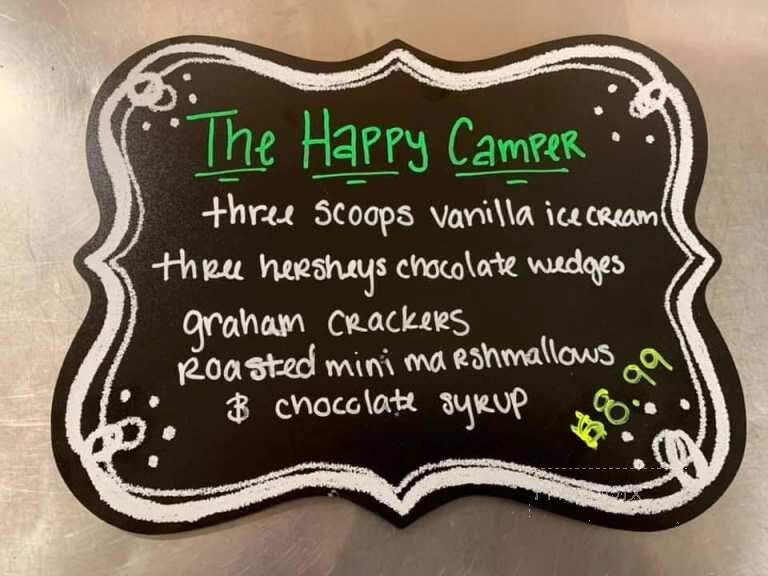 The Happy Camper
three scoops vanilla ice cream
three hersheys chocolate wedges
graham crackers
roasted mini marshmallows
& chocolate syrup
$8.99